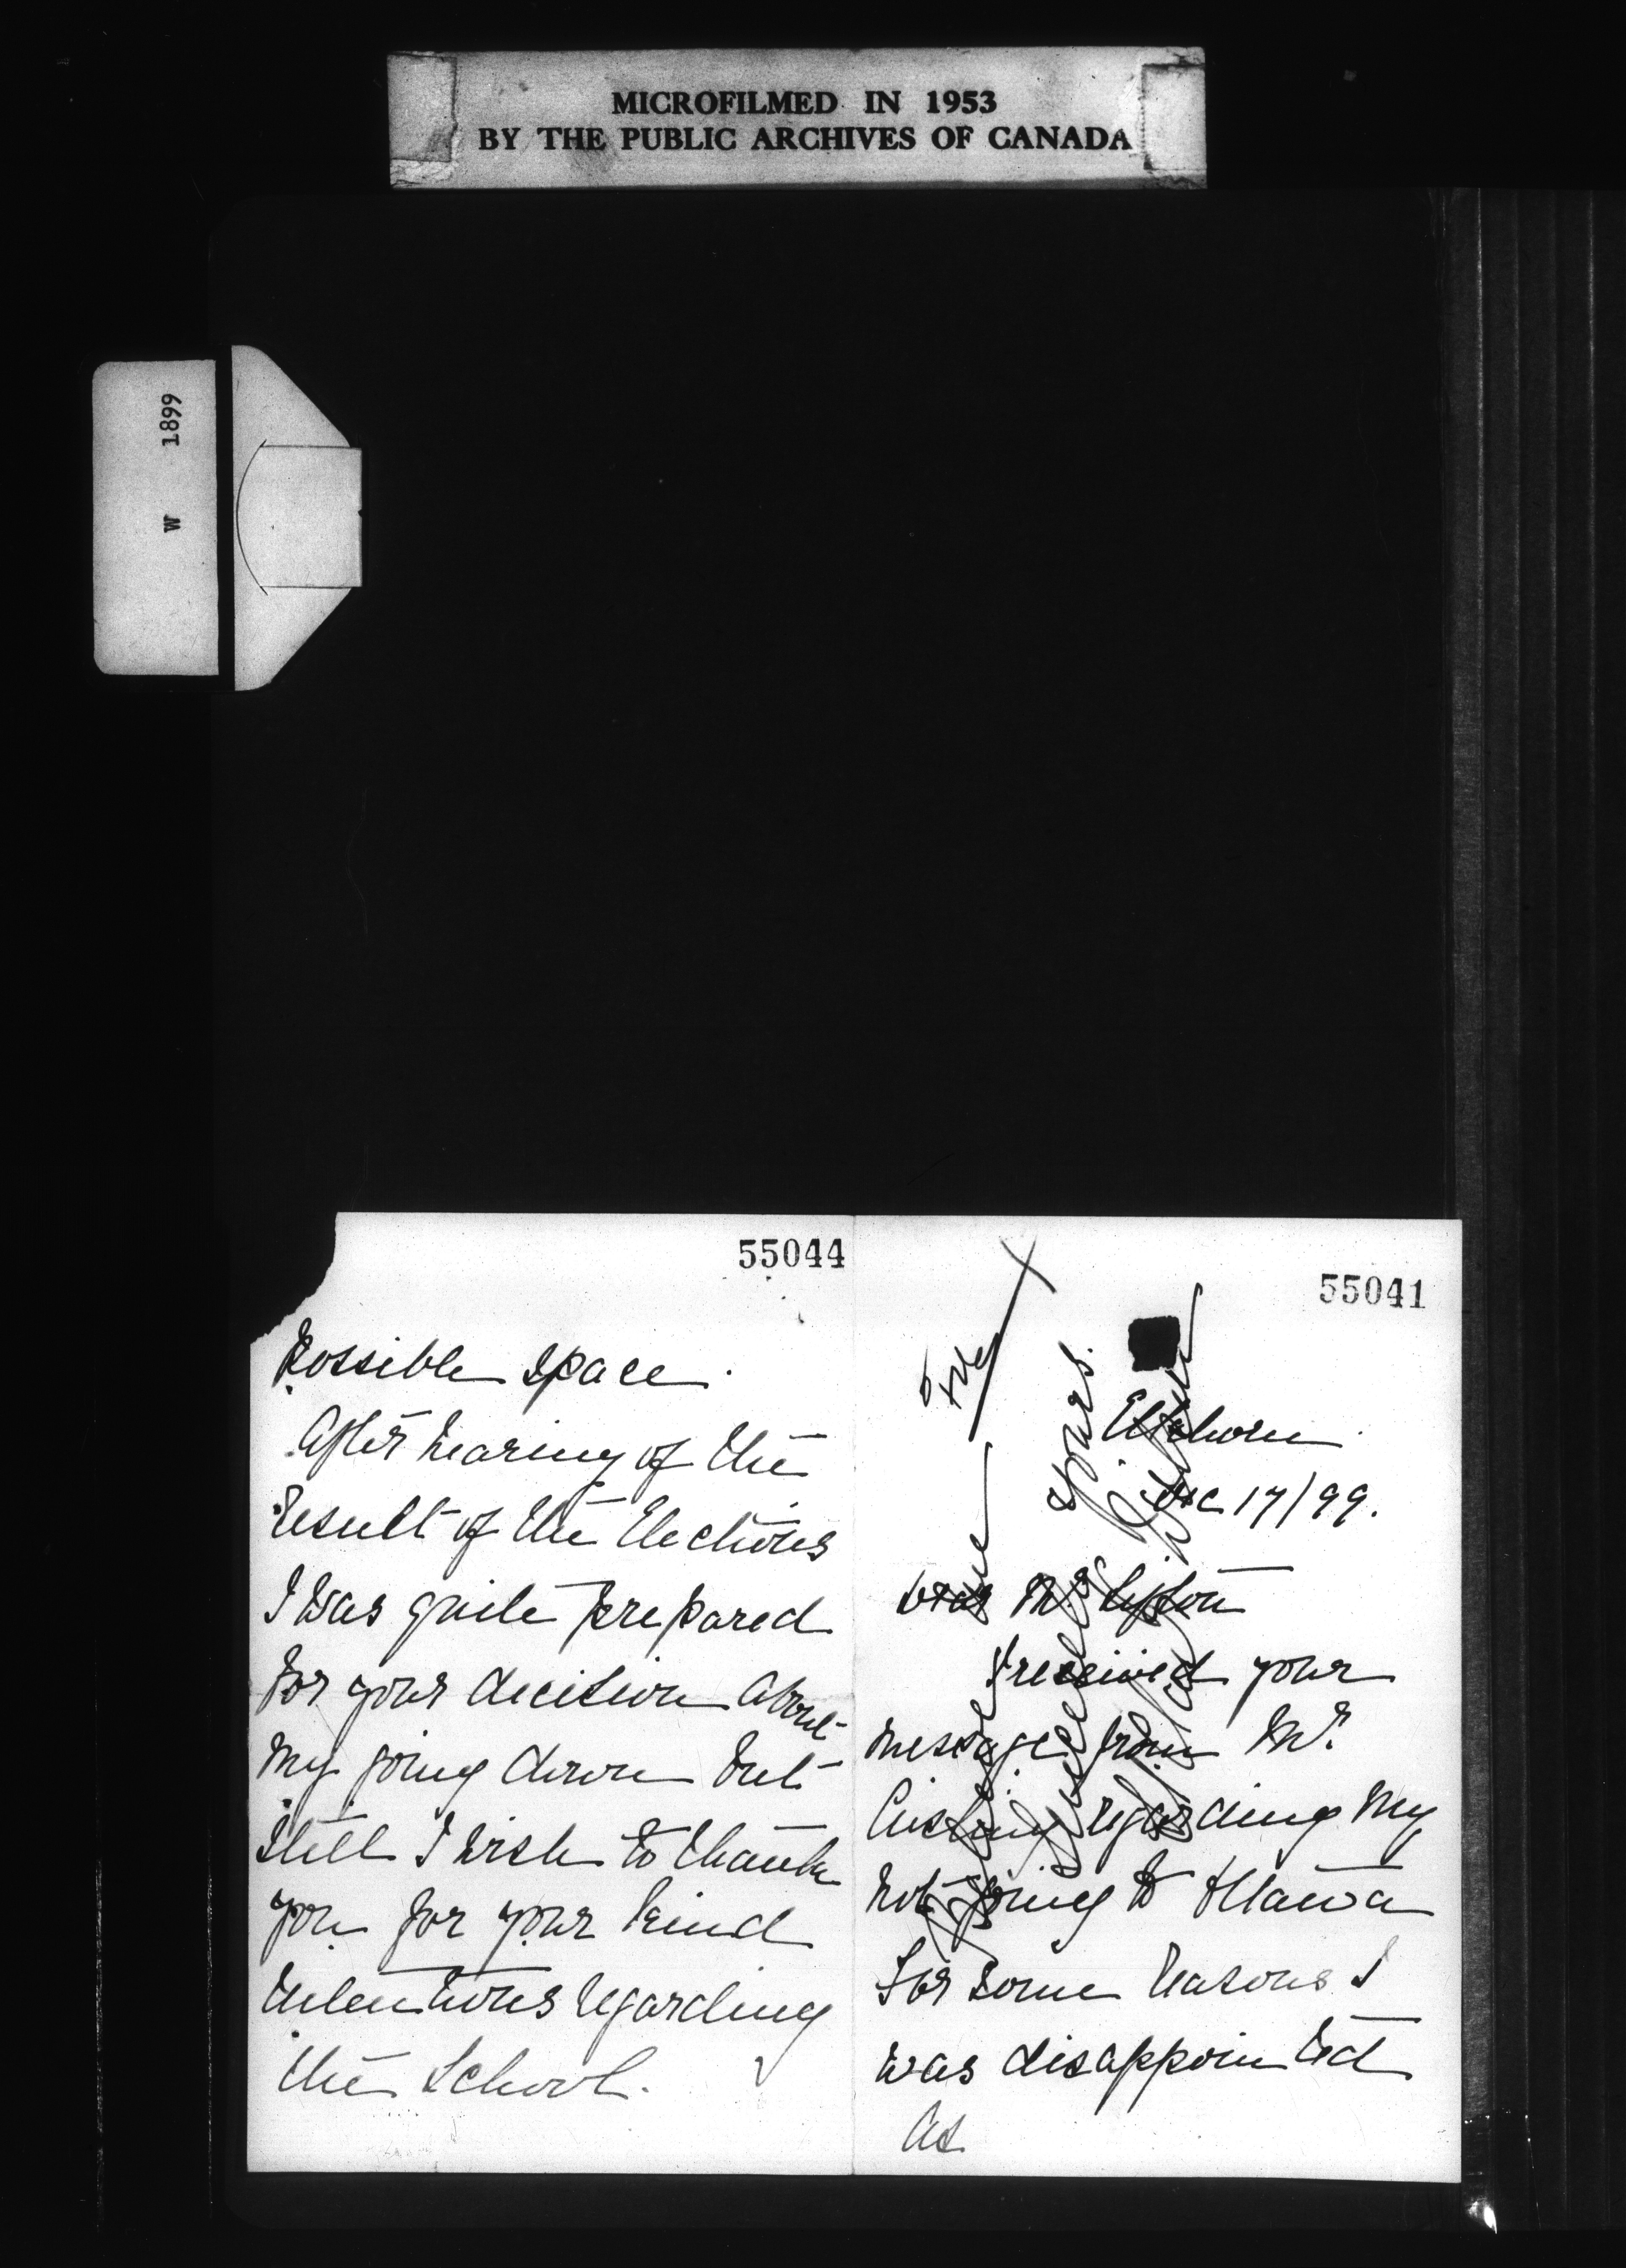 MICROFILMED IN 1953
BY THE PUBLIC ARCHIVES OF CANADA
W 1899
55044
Possible space.
After hearing of the
result of the Elections
I was quite prepared
for your decision about
my going down but
still I wish to thank
you for your kind
intentions regarding
the School.
55041
Elkhorn
Dec 17/99.
Dear Mr Sifton
I received your
message from Mr.
regarding my
not going to Ottawa
For some reasons I
was disappointed
As
yours.